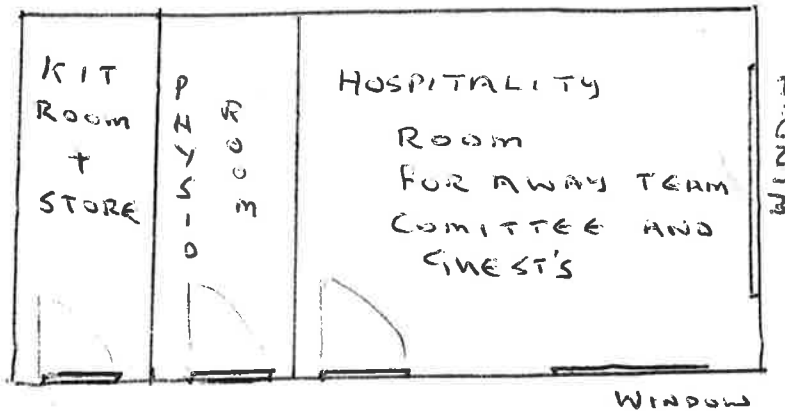 KIT
ROOM
+
STORE
PHYSIO
ROOM
HOSPITALITY
ROOM
FOR AWAY TEAM
COMITTEE AND
GUEST'S
WINDOW
WINDOW